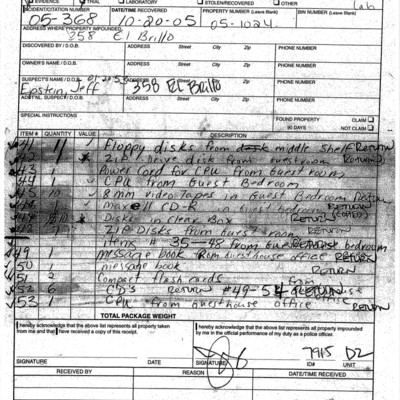 EVIDENCE TRIAL LABORATORY STOLEN/RECOVERED OTHER Lab
INCIDENT/CITATION NUMBER DATE/TIME RECEIVED PROPERTY NUMBER (Leave Blank) BIN NUMBER (Leave Blank)
05-368 10-20-05 05-1024
ADDRESS WHERE PROPERTY IMPOUNDED
358 El Brillo
DISCOVERED BY / D.O.B. ADDRESS Street City Zip PHONE NUMBER
OWNER'S NAME / D.O.B. ADDRESS Street City Zip PHONE NUMBER
SUSPECT'S NAME / D.O.B. ADDRESS Street City Zip PHONE NUMBER
Epstein, Jeff 358 El Brillo
ADDT'NL. SUSPECT / D.O.B. ADDRESS Street City Zip PHONE NUMBER
SPECIAL INSTRUCTIONS FOUND PROPERTY CLAIM
90 DAYS NOT CLAIM
ITEM # QUANTITY VALUE DESCRIPTION
41 Floppy disks from middle shelf Return
42 Zip drive disk from guestroom Return
43 1 Power Cord for CPU from Guest room
44 1 CPU from Guest Bedroom
45 10 8mm video Tapes in Guest Bedroom Return
Maxell CD-R in guest bedroom
Disks in Clear Box Return
ZIP Disks from guest room Return
items # 35-48 from Guest bedroom
49 1 message book from guesthouse office Return
50 1 message book Return
51 2 Compact flash cards from
52 6 CD's Return #49-54
53 1 CPU from guesthouse office Return
TOTAL PACKAGE WEIGHT
I hereby acknowledge that the above list represents all property taken from me and that I have received a copy of this receipt.
I hereby acknowledge that the above list represents all property impounded by me in the official performance of my duty as a police officer.
7915 D2
SIGNATURE DATE SIGNATURE ID# UNIT
RECEIVED BY REASON DATE/TIME RECEIVED